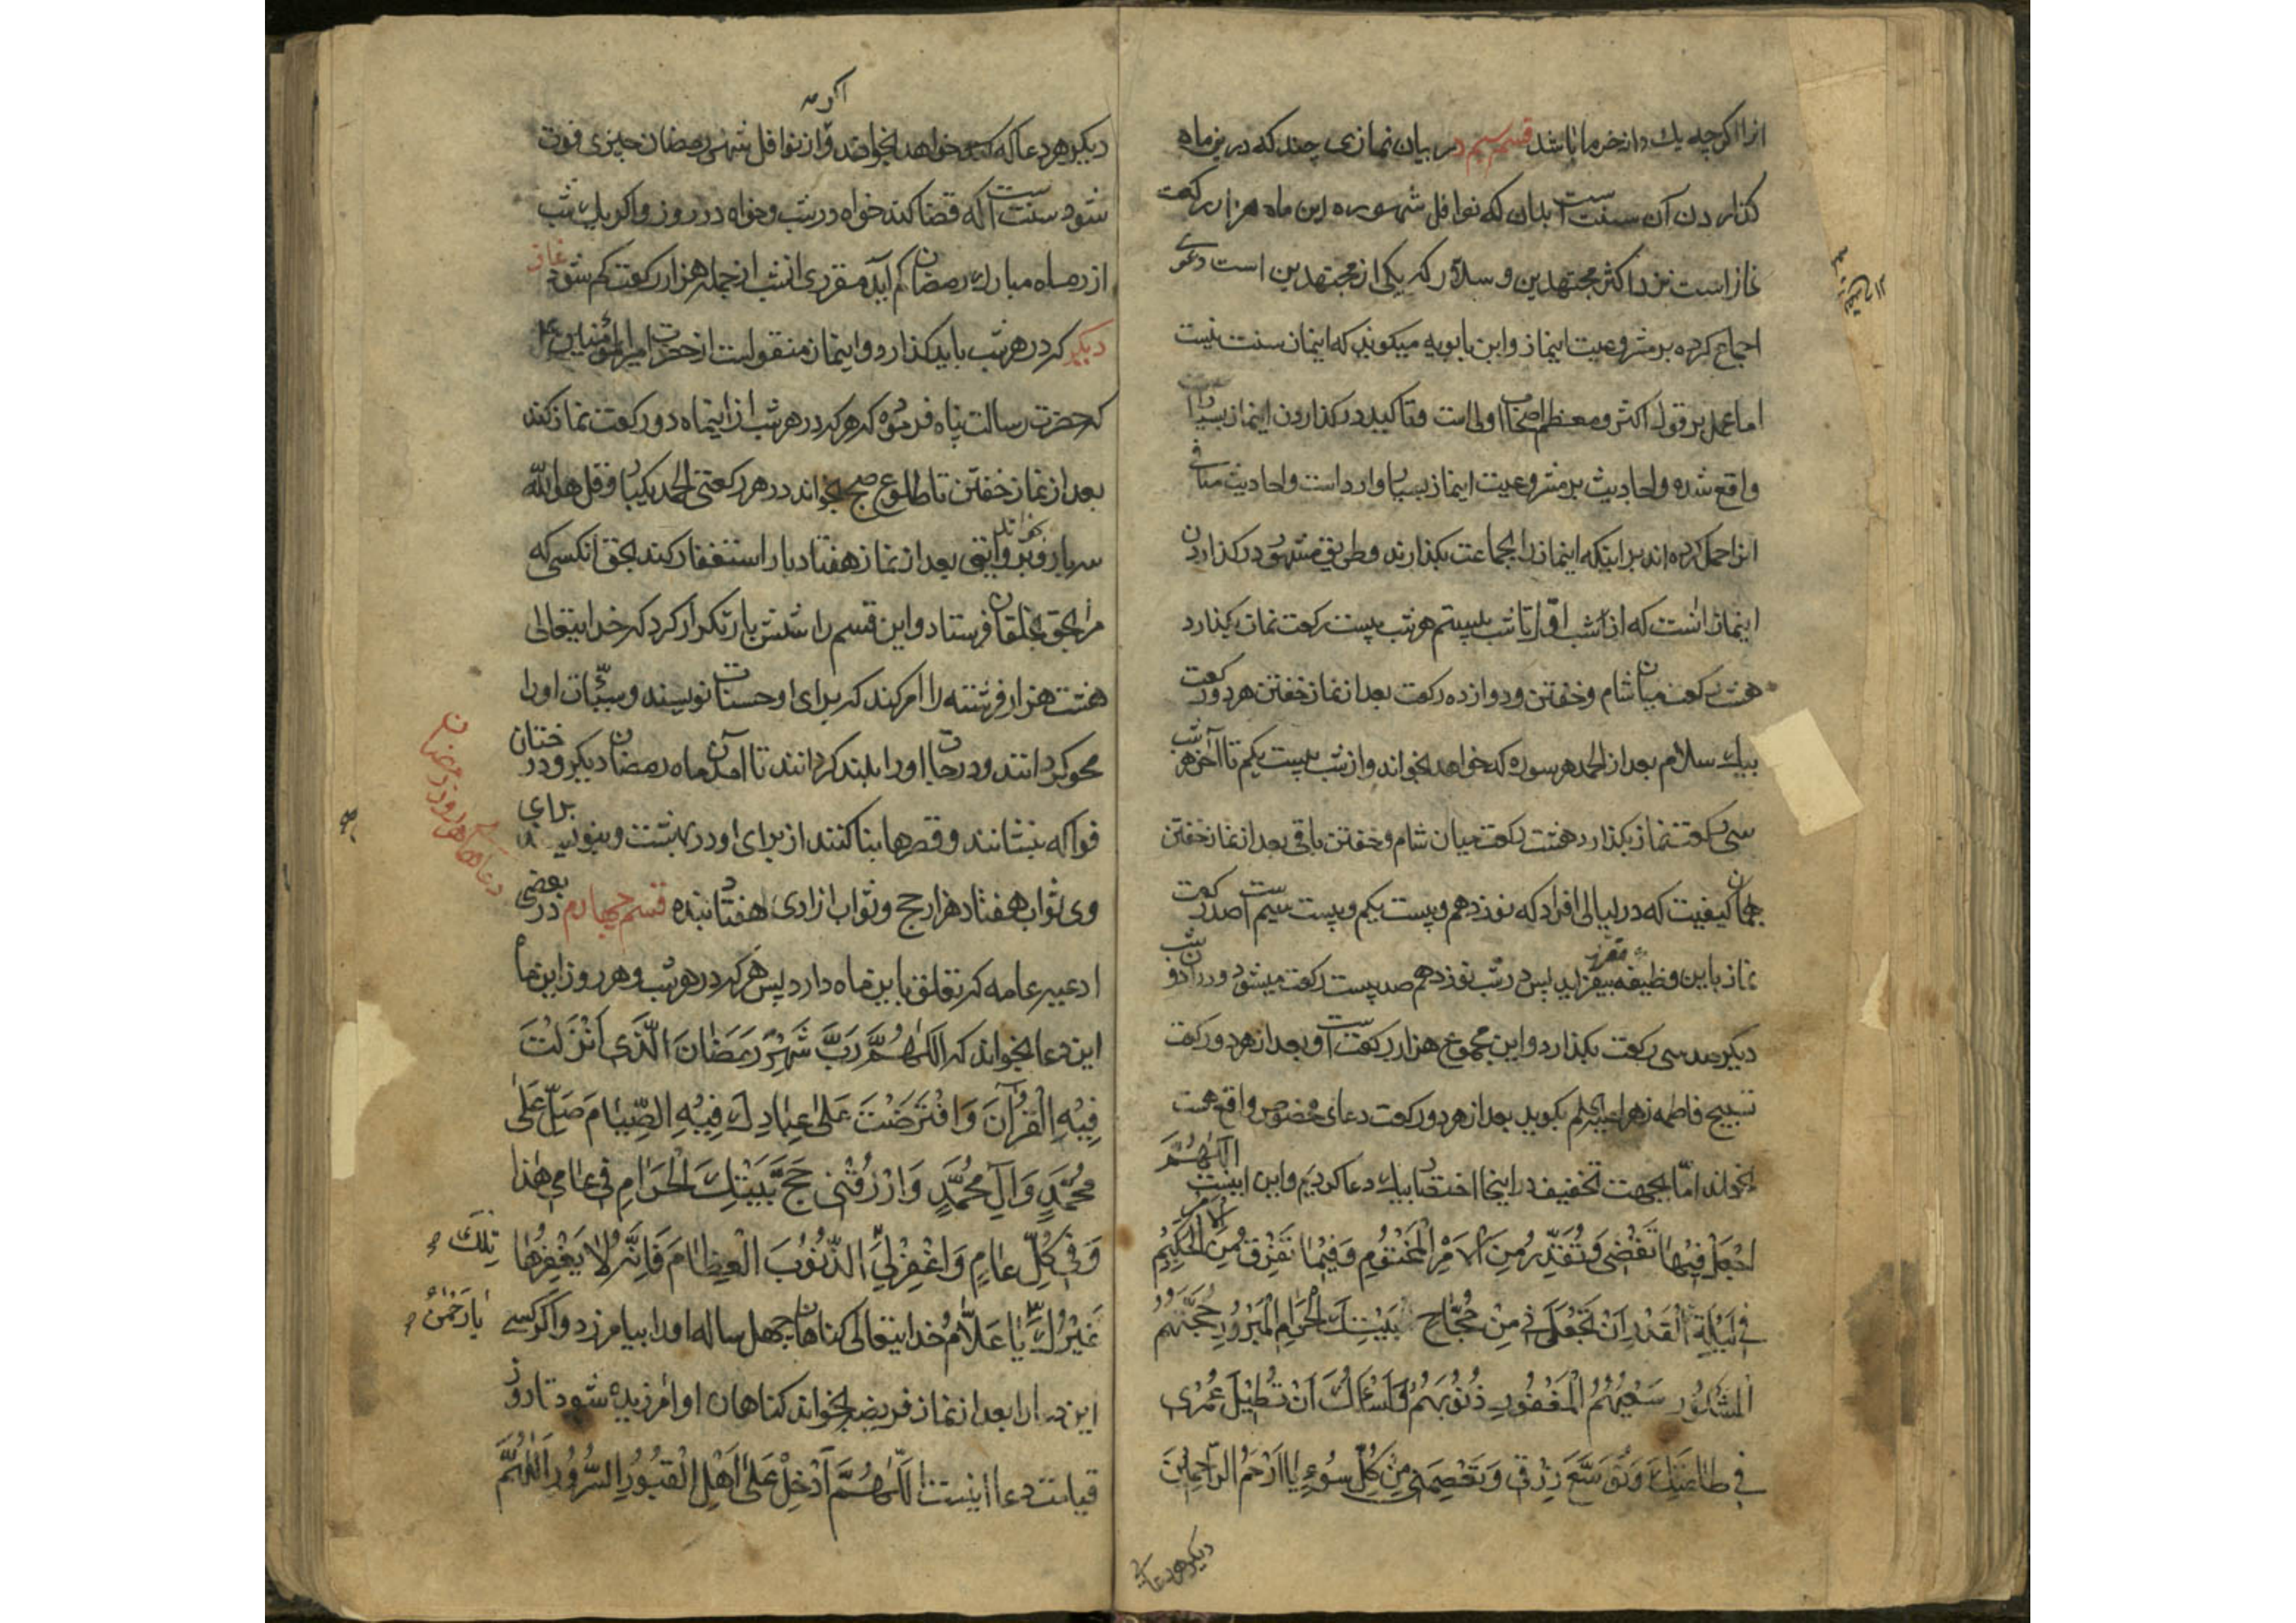 انرا اکرچه یك دانه خرما باشد قسم سیم در بیان نمازی چند که درین ماه
کذاردن آن سنت است بدان که نوافل شهوره این ماه هزار رکعت
نماز است نزد اکثر مجتهدین و سلار که یکی از مجتهدین است دعوی
اجماع کرده بر مشروعیت اینماز و ابن بابویه میکوید که اینماز سنت نیست
اما عمل بر قول اکثر و معظم اصحاب اولی است و تاکید در کذاردن اینماز بسیار
واقع شده و احادیث بر مشروعیت اینماز بسیار وارد است و احادیث منافی
انرا حمل کرده اند بر اینکه اینماز را بجماعت بکذارند و طریق مشهور در کذاردن
اینماز انست که از شب اول تا شب بیستم هر شب بیست رکعت نماز بکذارد
هشت رکعت میان شام و خفتن و دوازده رکعت بعد از نماز خفتن هر دو رکعت
بیك سلام بعد از الحمد هر سوره که خواهد بخواند و از شب بیست یکم تا آخر هر شب
سی رکعت نماز بکذارد هشت رکعت میان شام و خفتن باقی بعد از نماز خفتن
بهمان کیفیت که در لیالی افراد که نوزدهم و بیست یکم و بیست سیم است صد رکعت
نماز باین وظیفه مقرره بیفزاید پس در شب نوزدهم صد بیست رکعت میشود و در آن دو شب
دیکر صد سی رکعت بکذارد و این مجموع هزار رکعت است و بعد از هر دو رکعت
تسبیح فاطمه زهرا بکوید بعد از هر دو رکعت دعای مخصوص واقع هست
بخواند اما بجهت تخفیف در اینجا اختصار بیك دعا کردیم و این اینست اَللّٰهُمَّ
اجْعَلْ فِیْهٰا تَقْضٖی وَتُقَدِّرُ مِنَ الْاَمْرِ الْمَحْتُوْمِ وَفِیْمٰا تَفْرُقُ مِنَ الْاَمْرِ الْحَکِیْمِ
فِی لَیْلَةِ الْقَدْرِ اَنْ تَجْعَلَنٖی مِنْ حُجّٰاجِ بَیْتِكَ الْحَرٰامِ الْمَبْرُوْرِ حَجُّهُمْ
الْمَشْکُوْرِ سَعْیُهُمُ الْمَغْفُوْرِ ذُنُوْبُهُمْ وَاَسْئَلُكَ اَنْ تُطٖیْلَ عُمْرٖی
فِی طٰاعَتِكَ وَتُوَسِّعَ رِزْقٖی وَتَعْصِمَنٖی مِنْ کُلِّ سُوْءٍ یٰا اَرْحَمَ الرّٰاحِمٖیْنَ
دیکر هر دعا که
دیکر هر دعا که خواهد بخواند و اکر از نوافل شهر رمضان چیزی فوت
شود سنت است که قضا کند خواه در شب و خواه در روز و اکر یك شب
از ماه مبارك رمضان کم آید مقرری انشب از جمله هزار رکعت کم شود نماز
دیکر که در هر شب باید کذارد و اینماز منقولست از حضرت امیرالمؤمنین ع
که حضرت رسالت پناه فرموده که هر که در هر شب از اینماه دو رکعت نماز کند
بعد از نماز خفتن تا طلوع صبح بخواند در هر رکعتی الحمد یکبار و قل هو الله
سه بار و بروایتی بعد از نماز هفتاد بار استغفار کند بحق انکسی که
مرا بحق بخلقان فرستاد و این قسم را شش بار تکرار کرد که خدایتعالی
هشت هزار فرشته را امر کند که برای او حسنات نویسند و سیّئات او را
محو کردانند و درجات او را بلند کردانند تا آمدن ماه رمضان دیکر و درختان
فواکه بنشانند و قصرها بنا کنند از برای او در بهشت و بنویسند برای
وی ثواب هفتاد هزار حج و ثواب ازادی هفتاد بنده قسم چهارم در بعضی
ادعیه عامه که تعلق باین ماه دارد پس هر که در هر شب و هر روز این ماه
این دعا بخواند که اَللّٰهُمَّ رَبَّ شَهْرِ رَمَضٰانَ الَّذٖی اَنْزَلْتَ
فِیْهِ الْقُرْآنَ وَافْتَرَضْتَ عَلٰی عِبٰادِكَ فِیْهِ الصِّیٰامَ صَلِّ عَلٰی
مُحَمَّدٍ وَآلِ مُحَمَّدٍ وَارْزُقْنٖی حَجَّ بَیْتِكَ الْحَرٰامِ فٖی عٰامٖی هٰذٰا
وَفٖی کُلِّ عٰامٍ وَاغْفِرْ لٖی تِلْكَ الذُّنُوْبَ الْعِظٰامَ فَاِنَّهُ لٰا یَغْفِرُهٰا
غَیْرُكَ یٰا رَحْمٰنُ یٰا عَلّٰامُ خدایتعالی کناهان چهل ساله او را بیامرزد و اکر کسی
این دعا را بعد از نماز فریضه بخواند کناهان او امرزیده شود تا روز
قیامت دعا اینست اَللّٰهُمَّ اَدْخِلْ عَلٰی اَهْلِ الْقُبُوْرِ السُّرُوْرَ اَللّٰهُمَّ
دعاهای هر روز رمضان